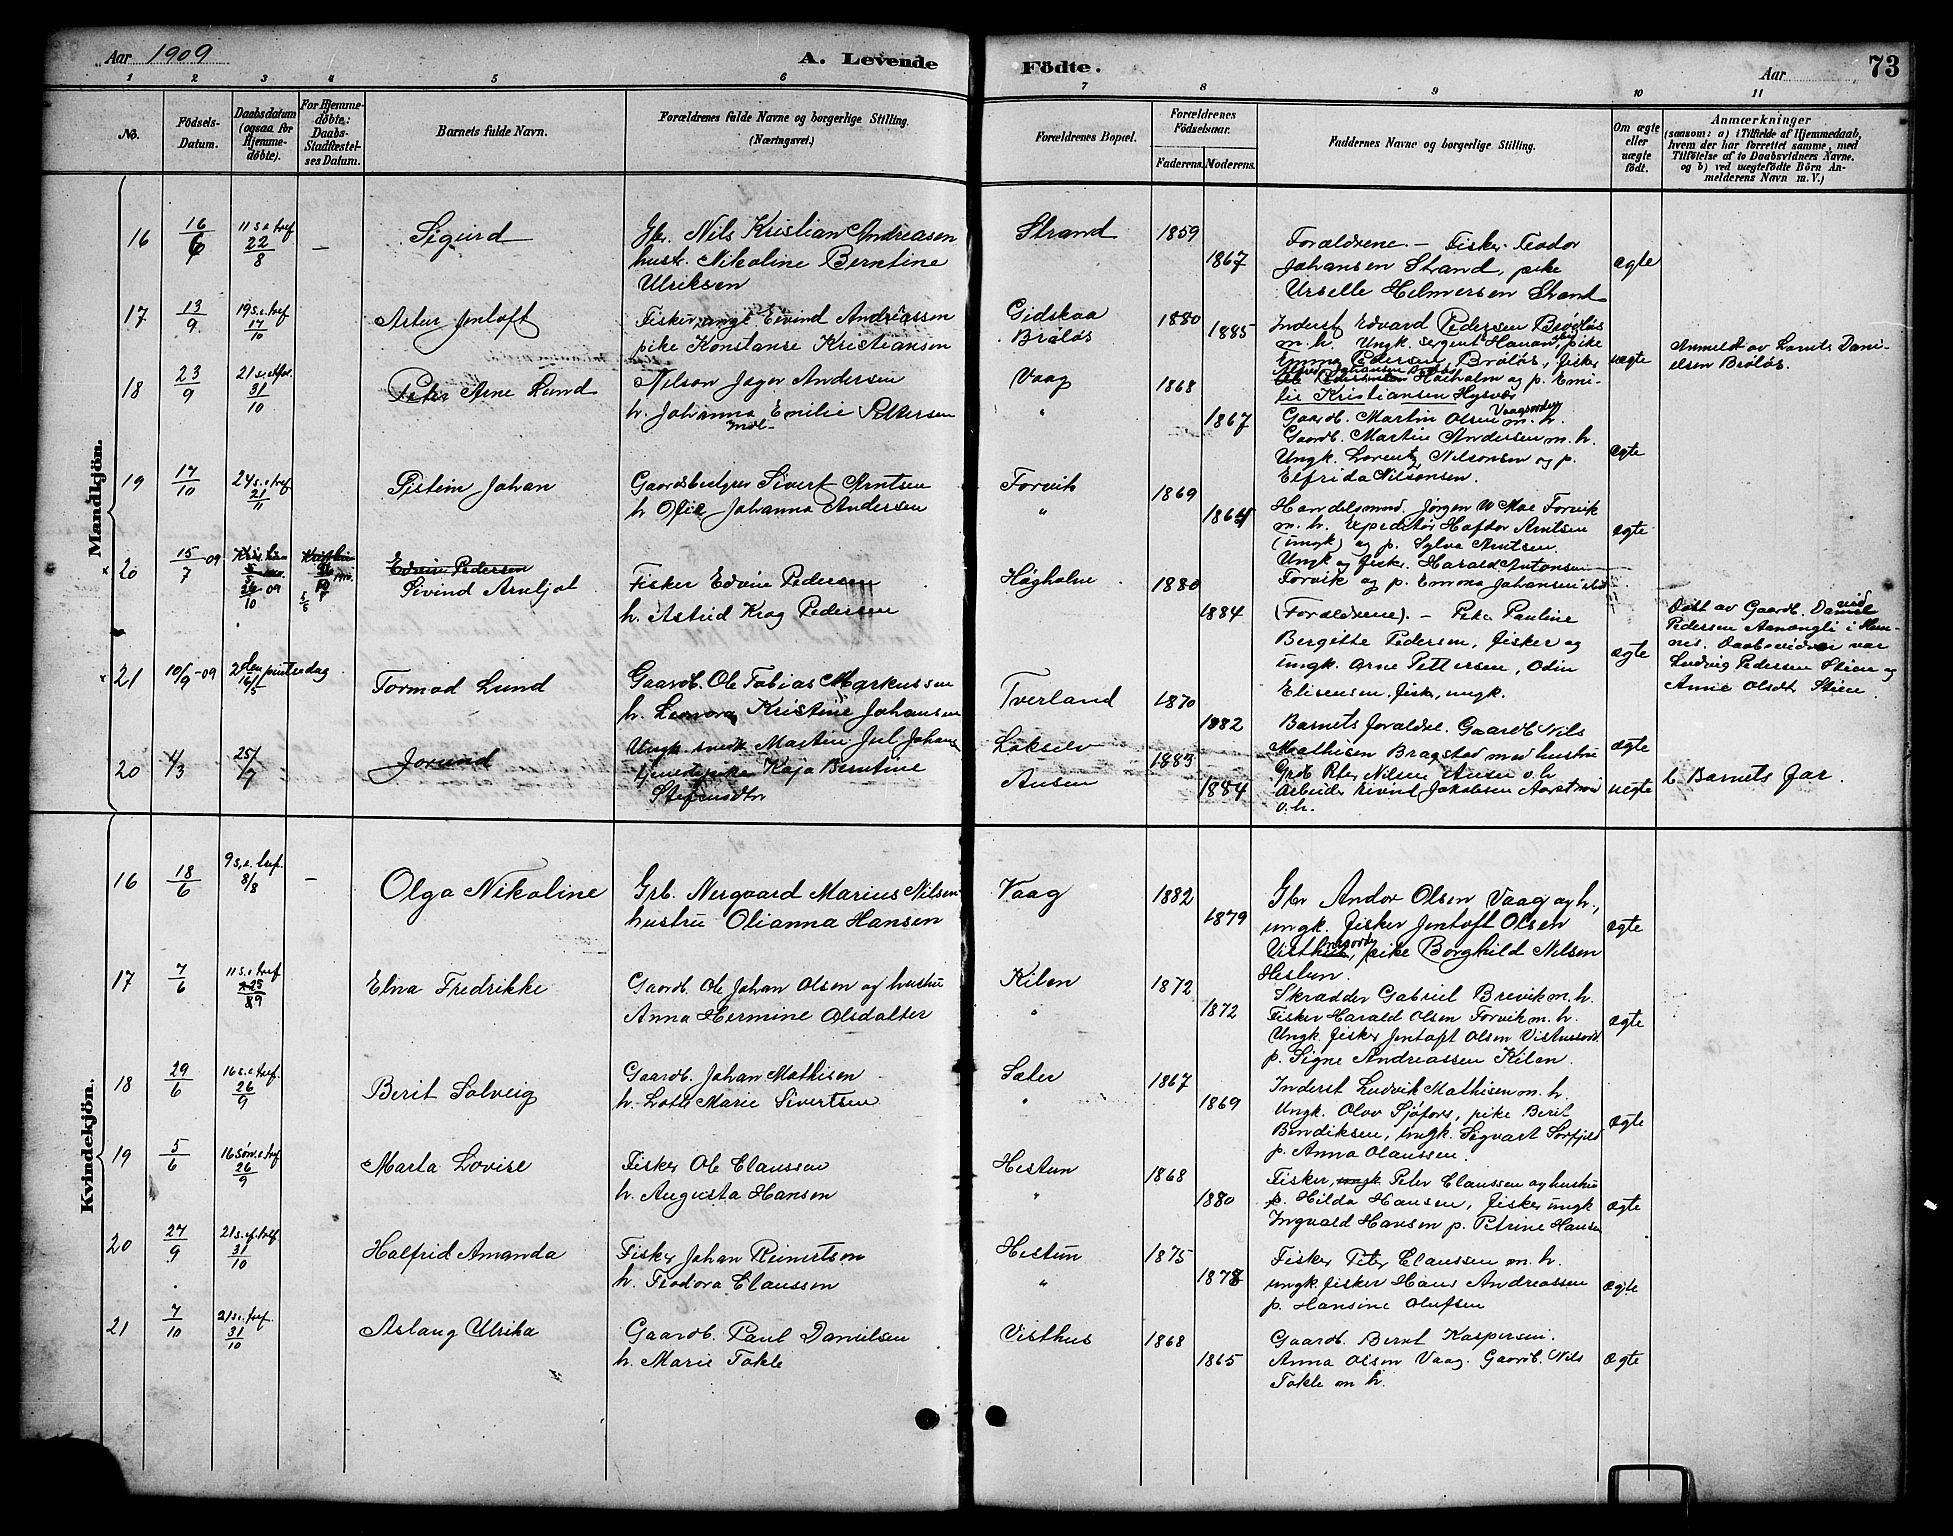 Aar 1909
A. Levende
Födte.
Aar
73
1 2 3 4 5 6 7 8 9 10 11
No.
Födsels-Datum.
Daabsdatum (ogsaa for Hjemme-döbte).
For Hjemme-döbte: Daabs-Stadfæstel-ses Datum.
Barnets fulde Navn.
Forældrenes fulde Navne og borgerlige Stilling.
(Næringsvei.)
Forældrenes Bopæl.
Forældrenes Födselsaar.
Faderens. Moderens.
Faddernes Navne og borgerlige Stilling.
Om ægte eller uægte födt.
Anmærkninger
(saasom: a) i Tilfælde af Hjemmedaab,
hvem der har forrettet samme, med
Tilföielse af to Daabsvidners Navne.
og b) ved uægtefödte Börn An-
melderens Navn m. V.)
Mandkjön.
16 16/6 11 s.e. tref 22/8 – Sigurd
Gbr. Nils Kristian Andreasen
hustr. Nikoline Berntine
Ulriksen
Strand 1859 1867
Forældrene. – Fisker Teodor
Johansen Strand, pike
Urselle Hilmersen Strand
ægte
17 13/9 19 s.e. tref 17/10 Artur Jentoft
Fisker, ungk Eivind Andreassen
pike Konstanse Kristiansen
Gidskaa
Bröløs
1880 1885
Inderst Edvard Pedersen Brøløs
m. h. Ungk. sergent
Emma Pedersen Brøløs, fisker
uægte
Anmeldt av Dani-
elsen Brøløs.
18 23/9 31/10 Peter Arne Lund
Nilson Jager Andersen
h. Johanna Emilie Pettersen
Vaag 1868
" 1867
Høiholm og p. Emi-
lie Kristiansen Hysvær
Gaardb. Martin Olsen m. h.
Gaardb. Martin Andersen m. h.
Ungk. Lorentz Nilsonsen og p.
Elfrida Nilsonsen.
ægte
19 17/10 24 s.e. tref 21/11 Johan
Gaardsbestyrer Sivert Arntsen
h. Johanna Andersen
Forvik 1869
" 1864
Handelsmnd. Jørgen W Moe Forvik
m. h. Expeditør Haftor Arntsen
(ungk) og p. Sylva Arntsen.
Ungk og fisk. Harald Antonsen
Forvik og p. Emma Johansen
ægte
20 15/7 -09 26/10 09
Edvin Pedersen
Eivind Arneljot
Fisker Edvin Pedersen
h. Astrid Krog Pedersen
Høgholm 1880 1884
(Forældrene). – Pike Pauline
Bergitte Pedersen, fisker og
ungk. Arne Pettersen, Odin
Elisensen, fisk, ungk.
ægte
Døbt av Gaardb.
Pedersen i Hem-
nes. Daabsvidner var
Ludvig Pedersen Stien og
Anne Olsdt Stien.
21 10/9 -09 2den pintsedag 16/5 Tormod Lund
Gaardb. Ole Tobias Markussen
h. Leonora Kristine Johansen
Tverland 1870 1882
Barnets foræld. Gaardb Nils
Mathisen Bragstad med hustru
ægte
20 4/3 25/7 Jorund
Ungk. snedk Martin Jul Johans
Kaja Berntine
Stefensdtr
Lakselv
Ausen
1883 1884
Grdb. Peter Nilsen Ausen o. h
Arbeider Eivind Jakobsen
o. h.
uegte
b. Barnets far.
Kvindekjön.
16 18/6 9 s.e. tref. 8/8 – Olga Nikoline
Grb. Nergaard Marius Nilsen
hustru Olianna Hansen
Vaag 1882 1879
Gbr Andor Olsen Vaag og h.,
ungk. fisker Jentoft Olsen
Visthus, pike Borghild Nilsen
Hestun.
ægte
17 7/6 11 s.e. tref Elna Fredrikke
Gaardb. Ole Johan Olsen og hustru
Anna Hermine Olsdatter
Kilen 1872
" 1872
Skrædder Gabriel Brevik m. h.
Fisker Harald Olsen Forvik m. h.
Ungk. fisker Jentoft Olsen
p. Signe Andreassen Kilen.
ægte
18 29/6 16 s.e. tref. 26/9 Berit Solveig
Gaardb. Johan Mathisen
h. Lotte Marie Sivertsen
Sæter 1867
" 1869
Inderst Ludvik Mathisen m. h.
Ungk. Olav Sjøfors, pike Berit
Bendiksen, ungk. Sigvart Sørfjeld
p. Anna Olaussen.
ægte
19 5/6 16 søn. e. tref 26/9 Marta Lovise
Fisker Ole Claussen
h. Augusta Hansen
Hestun 1868
" 1880
Fisker, ungk Peter Claussen og hustru
p. Hilda Hansen, fisker ungk
Ingvald Hansen p. Petrine Hansen
ægte
20 27/9 21 s.e. tref 31/10 Halfrid Amanda
Fisker Johan Reinertsen
h. Teodora Claussen
Hestun 1875
" 1878
Fisker Peter Claussen m. h.
ungk. fisker Hans Andreassen
p. Hansine Olufsen
ægte
21 7/10 21 s.e. tref. 31/10 Aslaug Ulrika
Gaardb. Paul Danielsen
h. Marie Tokle
Visthus 1868 1865
Gaardb. Bernt Kaspersen.
Anna Olsen Vaag. Gaardb. Nils
Tokle m h.
ægte